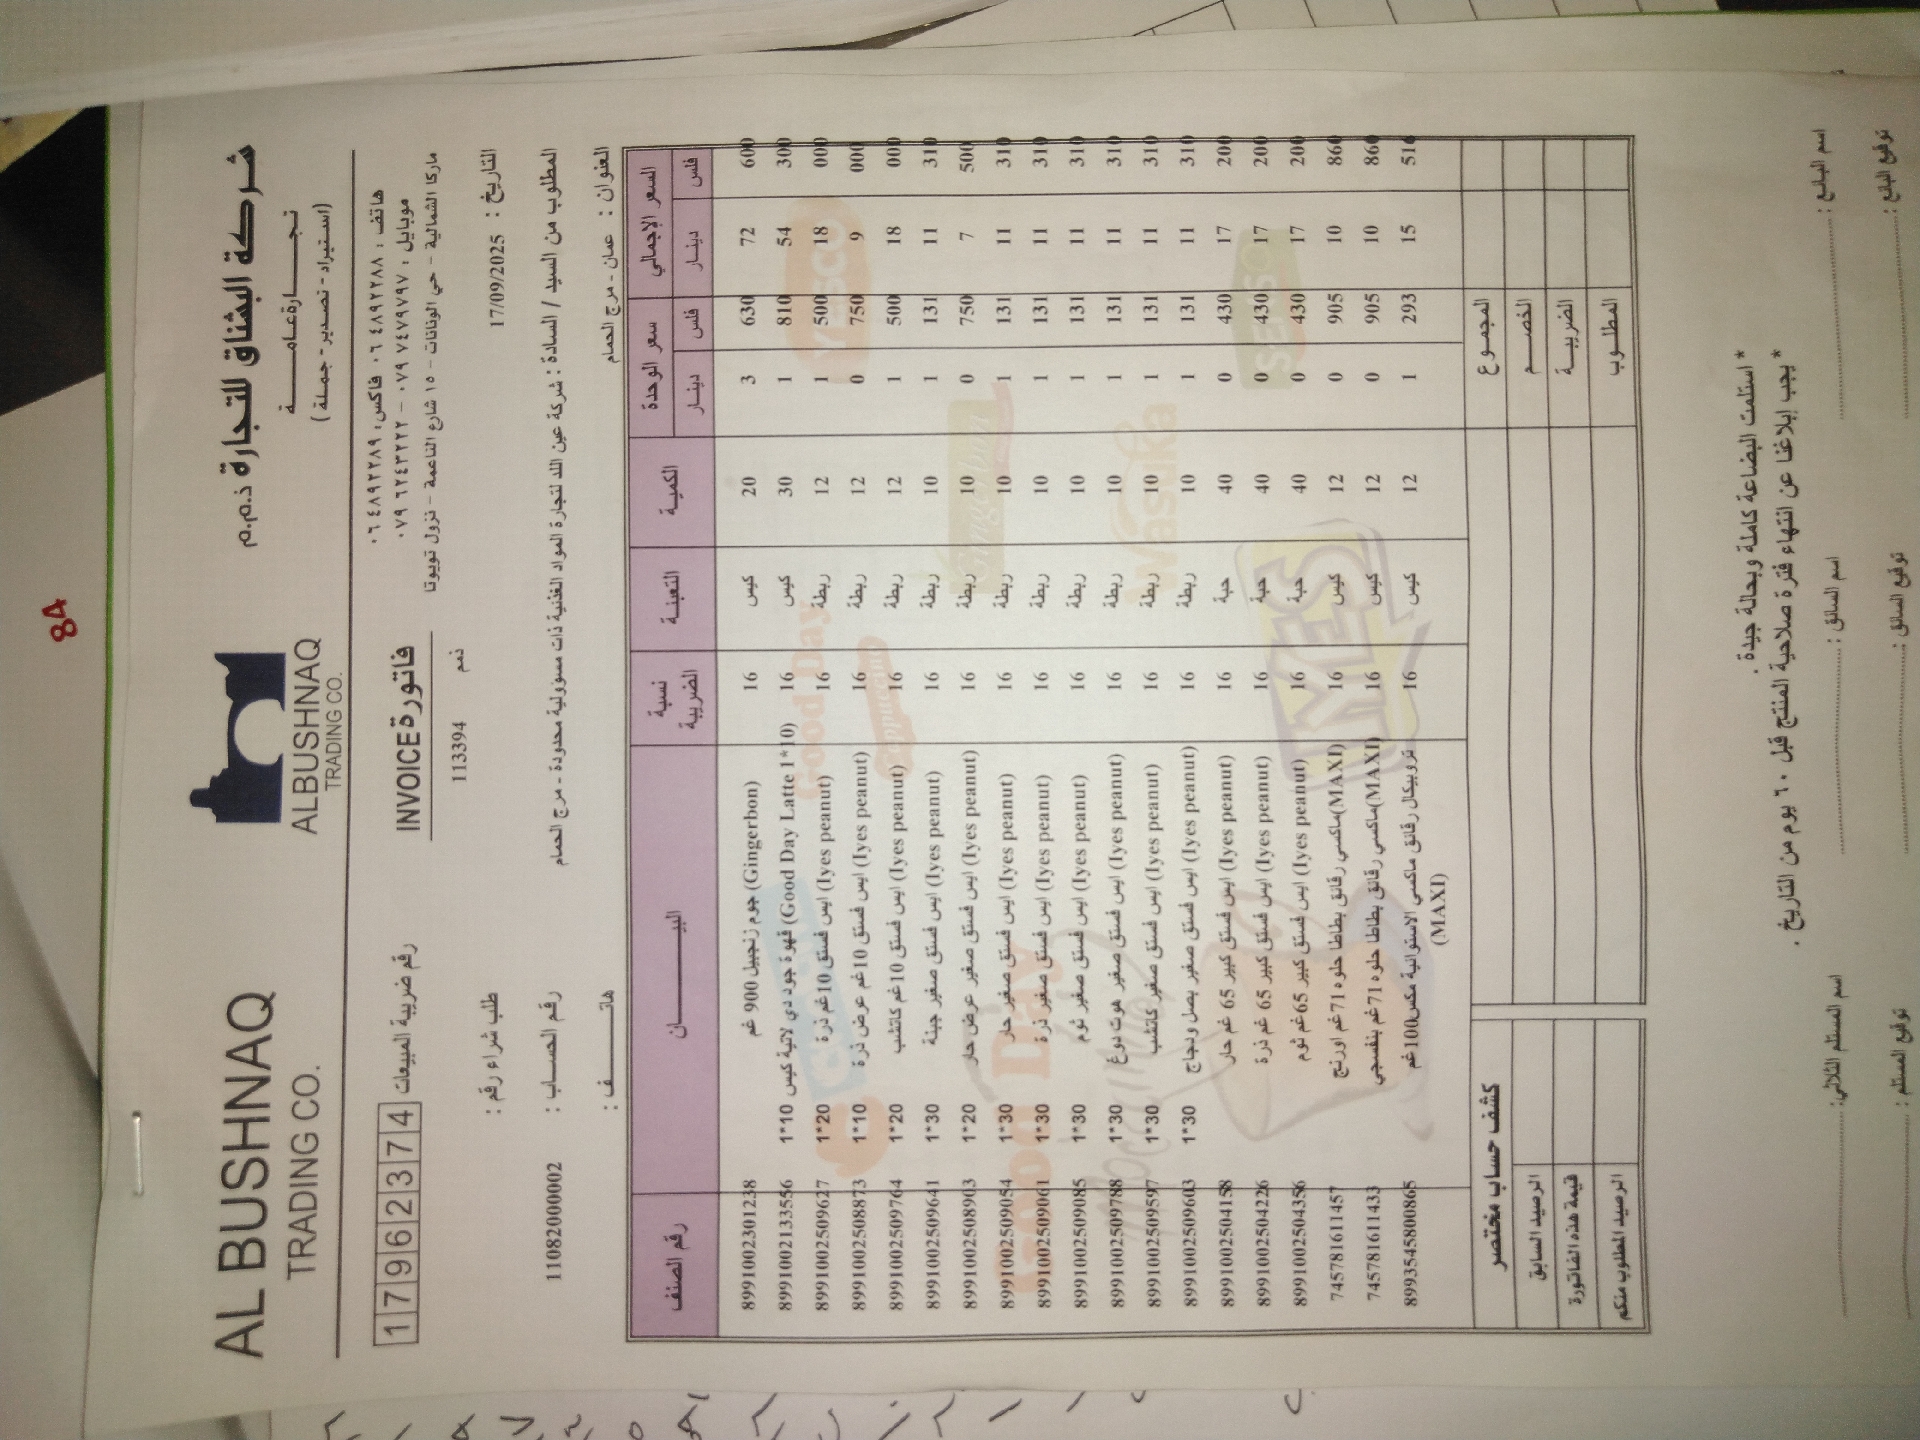 8A
AL BUSHNAQ
TRADING CO.
ALBUSHNAQ
TRADING CO.
شركة البشناق للتجارة ذ.م.م
تجارة عامة
(استيراد - تصدير - جملة)
1 7 9 6 2 3 7 4 رقم ضريبة المبيعات
فاتورة INVOICE
113394 ذمم
هاتف : ٠٦ ٤٨٩٢٢٨٨ فاكس: ٠٦ ٤٨٩٢٢٨٩
موبايل : ٠٧٩ ٧٤٧٩٧٩٧ - ٠٧٩ ٦٢٤٣٢٢٢
ماركا الشمالية - حي الونانات - ١٥ شارع الناعمة - نزول تويوتا
التاريخ : 17/09/2025
طلب شراء رقم :
المطلوب من السيد / السادة : شركة عين اللد لتجارة المواد الغذئية ذات مسؤولية محدودة - مرج الحمام
رقم الحساب : 11082000002
العنوان : عمان - مرج الحمام
هاتف :
رقم الصنف البيان نسبة الضريبة التعبئة الكمية سعر الوحدة السعر الإجمالي
دينار فلس دينار فلس
8991002301238 جوم زنجبيل 900 غم (Gingerbon) 16 كيس 20 3 630 72 600
8991002133556 1*10 قهوة جود دي لاتية كيس (Good Day Latte 1*10) 16 كيس 30 1 810 54 300
8991002509627 1*20 ايس فستق 10غم ذرة (Iyes peanut) 16 ربطة 12 1 500 18 000
8991002508873 1*10 ايس فستق 10غم عرض ذرة (Iyes peanut) 16 ربطة 12 0 750 9 000
8991002509764 1*20 ايس فستق 10غم كاتشب (Iyes peanut) 16 ربطة 12 1 500 18 000
8991002509641 1*30 ايس فستق صغير جبنة (Iyes peanut) 16 ربطة 10 1 131 11 310
8991002508903 1*20 ايس فستق صغير عرض حار (Iyes peanut) 16 ربطة 10 0 750 7 500
8991002509054 1*30 ايس فستق صغير حار (Iyes peanut) 16 ربطة 10 1 131 11 310
8991002509061 1*30 ايس فستق صغير ذرة (Iyes peanut) 16 ربطة 10 1 131 11 310
8991002509085 1*30 ايس فستق صغير ثوم (Iyes peanut) 16 ربطة 10 1 131 11 310
8991002509788 1*30 ايس فستق صغير هوت دوغ (Iyes peanut) 16 ربطة 10 1 131 11 310
8991002509597 1*30 ايس فستق صغير كاتشب (Iyes peanut) 16 ربطة 10 1 131 11 310
8991002509603 1*30 ايس فستق صغير بصل ودجاج (Iyes peanut) 16 ربطة 10 1 131 11 310
8991002504158 ايس فستق كبير 65 غم حار (Iyes peanut) 16 حبة 40 0 430 17 200
8991002504226 ايس فستق كبير 65 غم ذرة (Iyes peanut) 16 حبة 40 0 430 17 200
8991002504356 ايس فستق كبير 65غم ثوم (Iyes peanut) 16 حبة 40 0 430 17 200
745781611457 ماكسي رقائق بطاطا حلوه 71غم اورنج(MAXI) 16 كيس 12 0 905 10 860
745781611433 ماكسي رقائق بطاطا حلوه 71غم بنفسجي(MAXI) 16 كيس 12 0 905 10 860
8993545800865 تروبيكال رقائق ماكسي الاستوائية مكس100غم (MAXI) 16 كيس 12 1 293 15 516
كشف حساب مختصر
الرصيد السابق
قيمة هذه الفاتورة
الرصيد المطلوب منكم
المجموع
الخصم
الضريبة
المطلوب
* استلمت البضاعة كاملة وبحالة جيدة .
* يجب إبلاغنا عن انتهاء فترة صلاحية المنتج قبل ٦٠ يوم من التاريخ .
اسم البائع : اسم السائق : اسم المستلم الثلاثي:
توقيع البائع : توقيع السائق : توقيع المستلم :